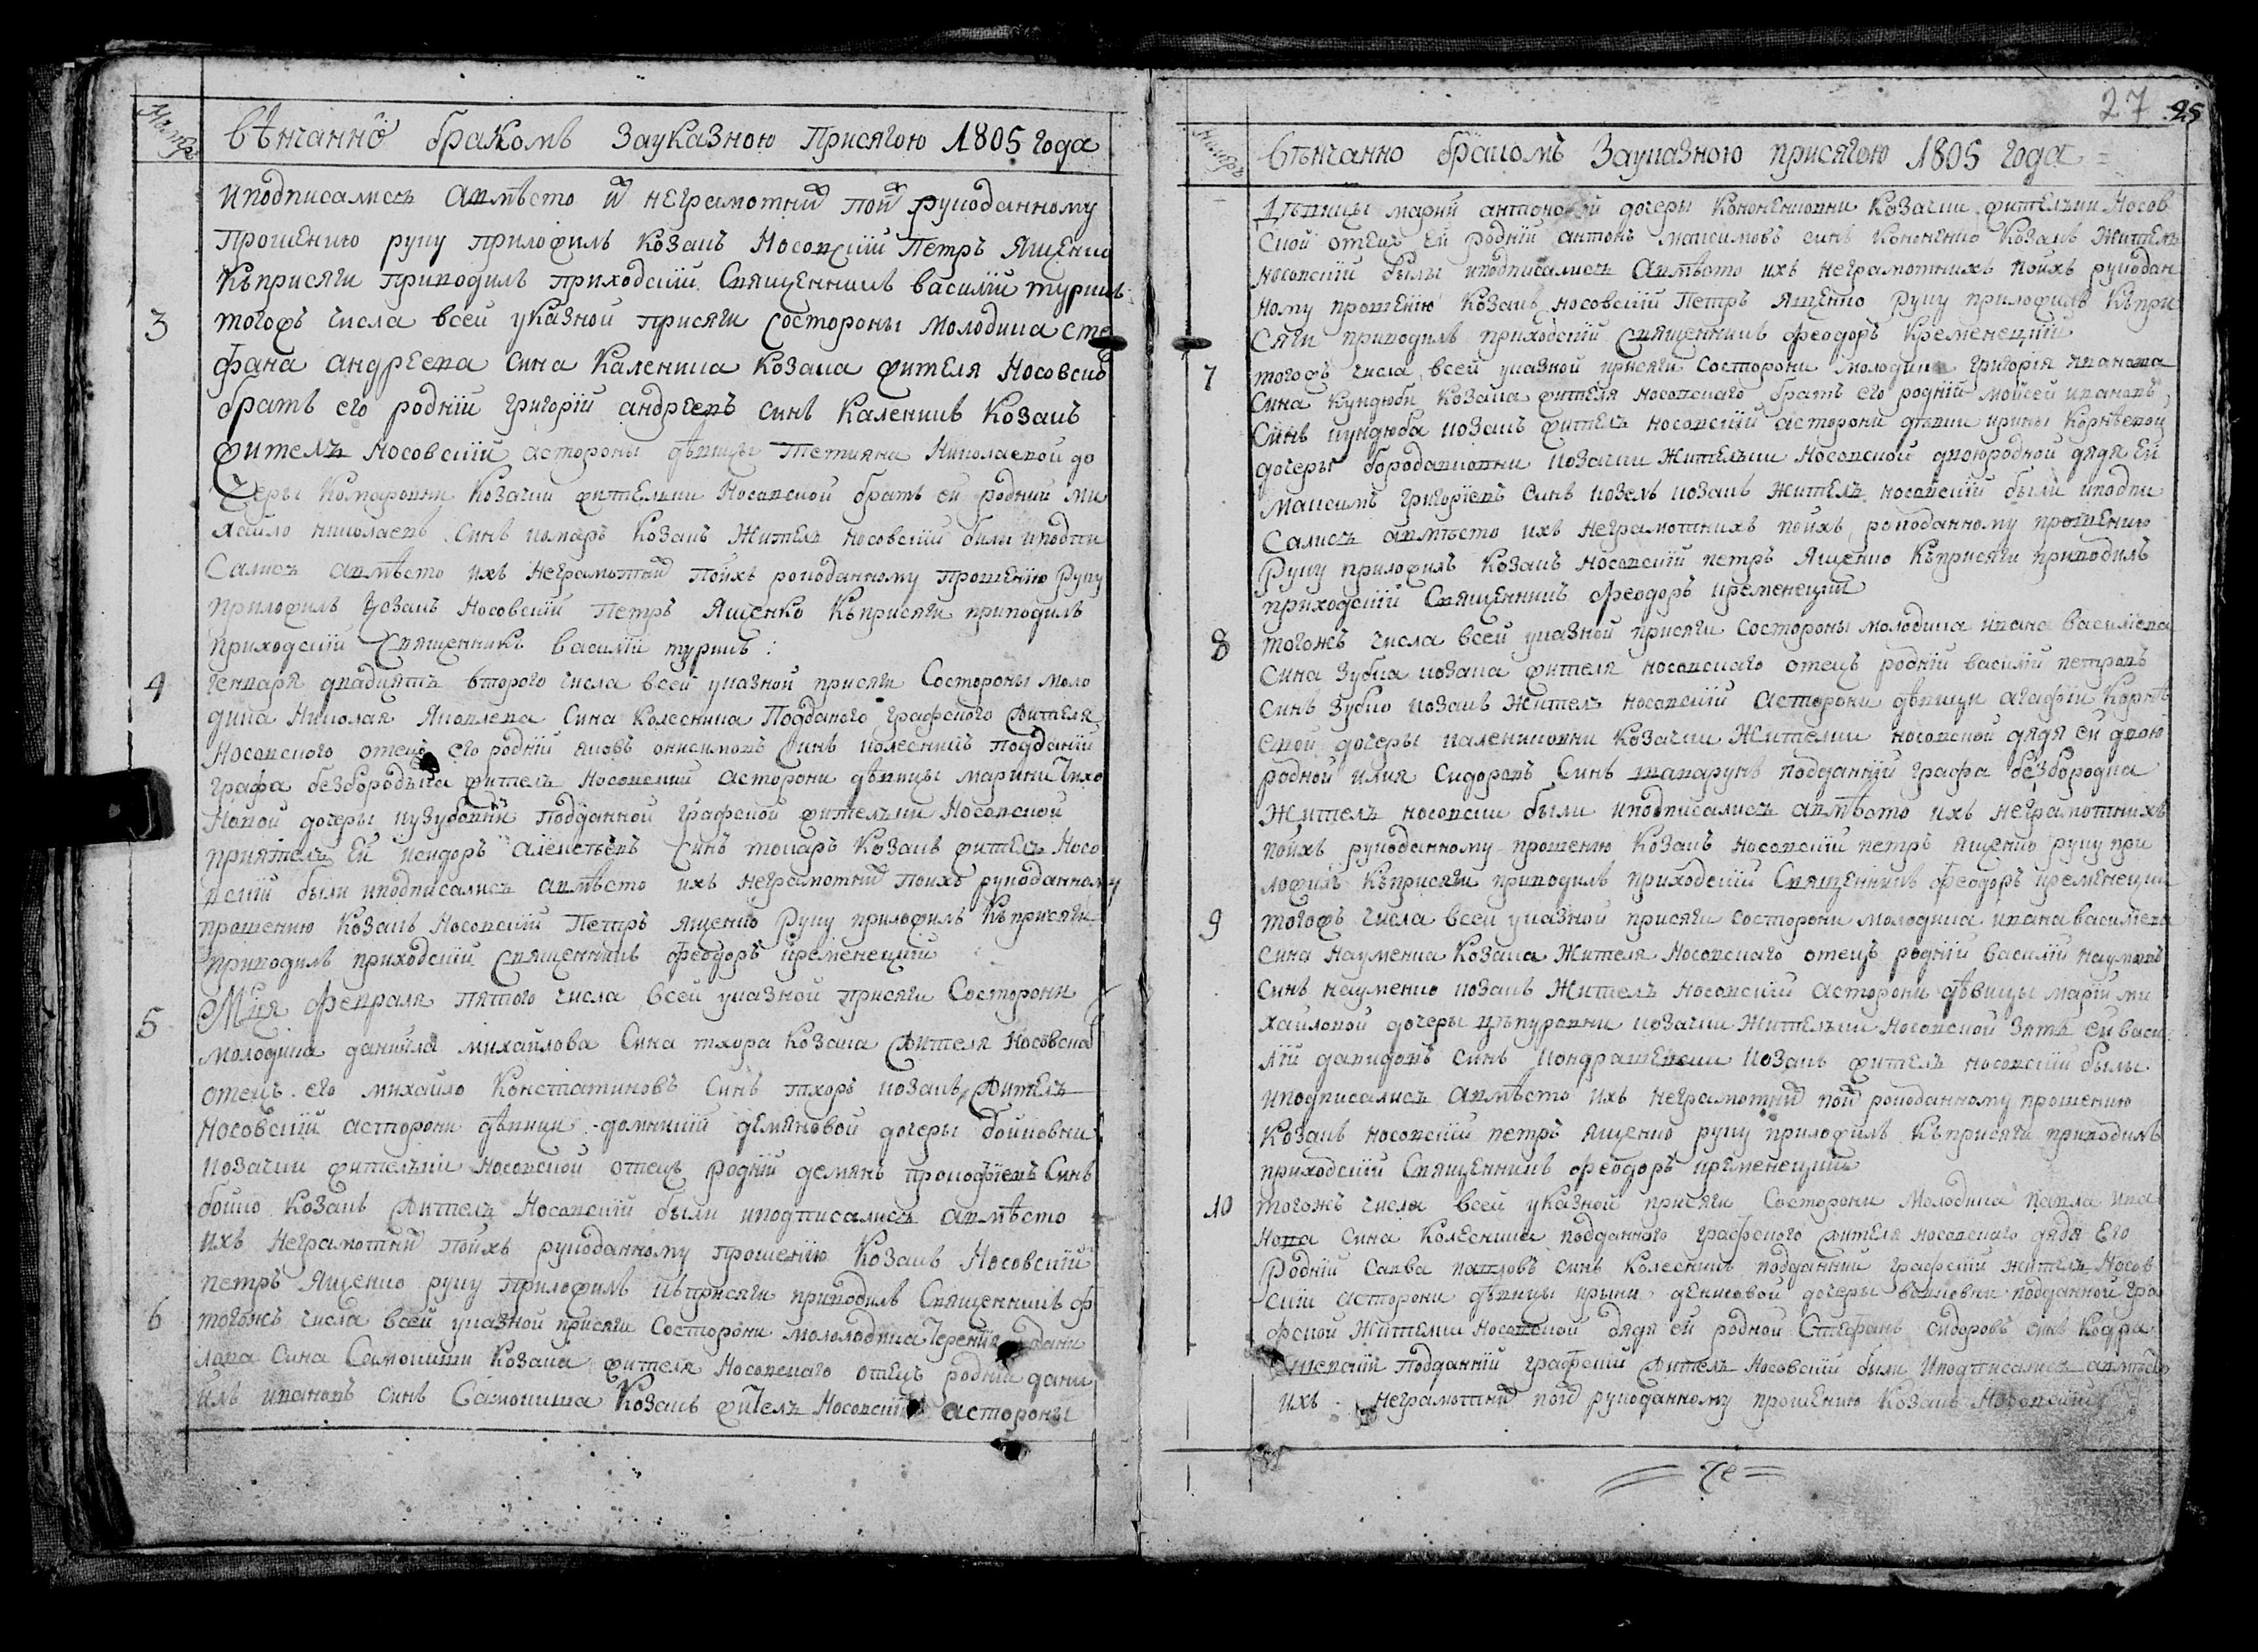 Нумѣръ
вѣнчанно бракомъ зауказною присягою 1805 года
иподписалисъ авмѣсто ихъ неграмотних поих рукоданному
прошению руку приложилъ козакъ Носовскій Петръ Ященко
къприсяги приводилъ приходскій священникъ василій турикъ
3
тогожъ числа всей указной присяги состороны молодика сте
фана андреева сина каленика козака жителя Носовско
братъ его родній григорій андреевъ синъ каленикъ козакъ
жителъ носовскій астороны дѣвицы Тетияни Николаевой до
черы комаровни козачки жителки Носовской братъ ей родній ми
хайло николаевъ синъ комаръ козакъ жителъ носовскій били иподпи
салисъ авмѣсто ихъ неграмотних поихъ рокоданному прошению руку
приложилъ козакъ Носовскій Петръ Ященко къприсяги приводилъ
приходскій священникъ василій турикъ :
4
генваря двадцять второго числа всей указной присяги состороны моло
дика Николая Яковлева сина колесника подданого графского жителя
Носовского отецъ его родній яковъ онисимовъ синъ колесникъ подданій
графа безбородька жителъ Носовскій асторони дѣвицы марини Тихо
новой дочеры кузубовни подданной графской жителъки Носовской
приятелъ ей исидоръ алексѣевъ синъ токаръ козакъ жителъ Носо
вскій были иподписалисъ авмѣсто ихъ неграмотних поихъ рукоданному
прошению козакъ Носовскій Петръ Ященко руку приложилъ къприсяги
приводилъ приходскій священникъ феодоръ кременецкій
5
Мця февраля пятого числа всей указной присяги состорони
молодика данийла михайлова сина тхора козака жителя Носовска
отецъ его михайло Констатиновъ синъ тхоръ козакъ жителъ
Носовскій асторони дѣвици домникій демяновой дочеры бойковни
козачки жителъки носовской отецъ родній демянъ прокофиевъ синъ
бойко козакъ жителъ Носовскій были иподписалисъ авмѣсто
ихъ неграмотних поихъ рукоданному прошению козакъ Носовскій
петръ Ященко руку приложилъ къприсяги приводилъ священникъ ф
6
тогожъ числа всей указной присяги состорони мололодика Терентия дани
лова сина Самокиши козака жителя Носовскаго отецъ родній дани
илъ ивановъ синъ Самокиша козакъ жителъ Носовскій астороны
27 25
Нумѣръ
вѣнчанно бракомъ зауказною присягою 1805 года =
Дѣвицы марий антоновой дочеры кононенковни козачки жителъки Носов
ской отецъ ей родній антонъ максимовъ синъ кононенко козакъ жителъ
носовскій былы иподписалисъ авмѣсто ихъ неграмотнихъ поихъ рукодан
ному прошению козакъ носовскій Петръ Ященко руку приложилъ къпри
сяги приводилъ приходскій священникъ феодоръ Кременецкій
7
тогожъ числа всей указной присяги состорони молодика григорія иванова
сина кундюби козака жителя носовскаго братъ его родній мойсей ивановъ
синъ кундюба козакъ жителъ носовскій асторони дѣвки ирины корнѣевой
дочеры бородавковни козачки жителъки носовской двоюродной дядя ей
максимъ григориевъ синъ козелъ козакъ жителъ носовскій были иподпи
салисъ авмѣсто ихъ неграмотнихъ поихъ рокоданному прошению
руку приложилъ козакъ носовскій петръ Ященко къприсяги приводилъ
приходскій священникъ феодоръ кременецкій
8
тогожъ числа всей указной присяги состороны молодика ивана василиева
сина зубка козака жителя носовскаго отецъ родній василій петровъ
синъ зубко козакъ жителъ носовскій асторони дѣвици агафіи корнѣ
евой дочеры калениковни козачки жителки носовской дядя ей двою
родной илия сидоровъ синъ шапарунъ подданній графа безбородка
жителъ носовски были иподписалисъ авмѣсто ихъ неграмотнихъ
поихъ рукоданному прошению козакъ носовскій петръ ященко руку при
ложилъ къприсяги приводилъ приходскій священникъ феодоръ кременецки
9
тогожъ числа всей указной присяги состорони молодика ивана василиева
сина науменка козака жителя носовскаго отецъ родній василій наумовъ
синъ науменко козакъ жителъ носовскій асторони дѣвицы марій ми
хайловой дочеры цѣпуровни козачки жителъки носовской зять ей васи
лій давидовъ синъ кондрашевски козакъ жителъ носовскій былы
иподписалисъ авмѣсто ихъ неграмотних поих рокоданному прошению
козакъ носовскій петръ ященко руку приложилъ къприсяги приводилъ
приходскій священникъ феодоръ кременецкій
10
тогожъ числа всей указной присяги состорони молодика павла ива
нова сина колесника подданного графского жителя носовскаго дядя его
родній савва павловъ синъ колесникъ подданній графскій жителъ Носов
скій асторони дѣвицы ирыни денисовой дочеры подданной гра
фской жителки носовской дядя ей родной Стефанъ сидоровъ синъ кодра
шевскій подданній графскій жителъ носовскій были иподписалисъ авмѣсто
ихъ неграмотних поих рукоданному прошению козакъ Носовскій